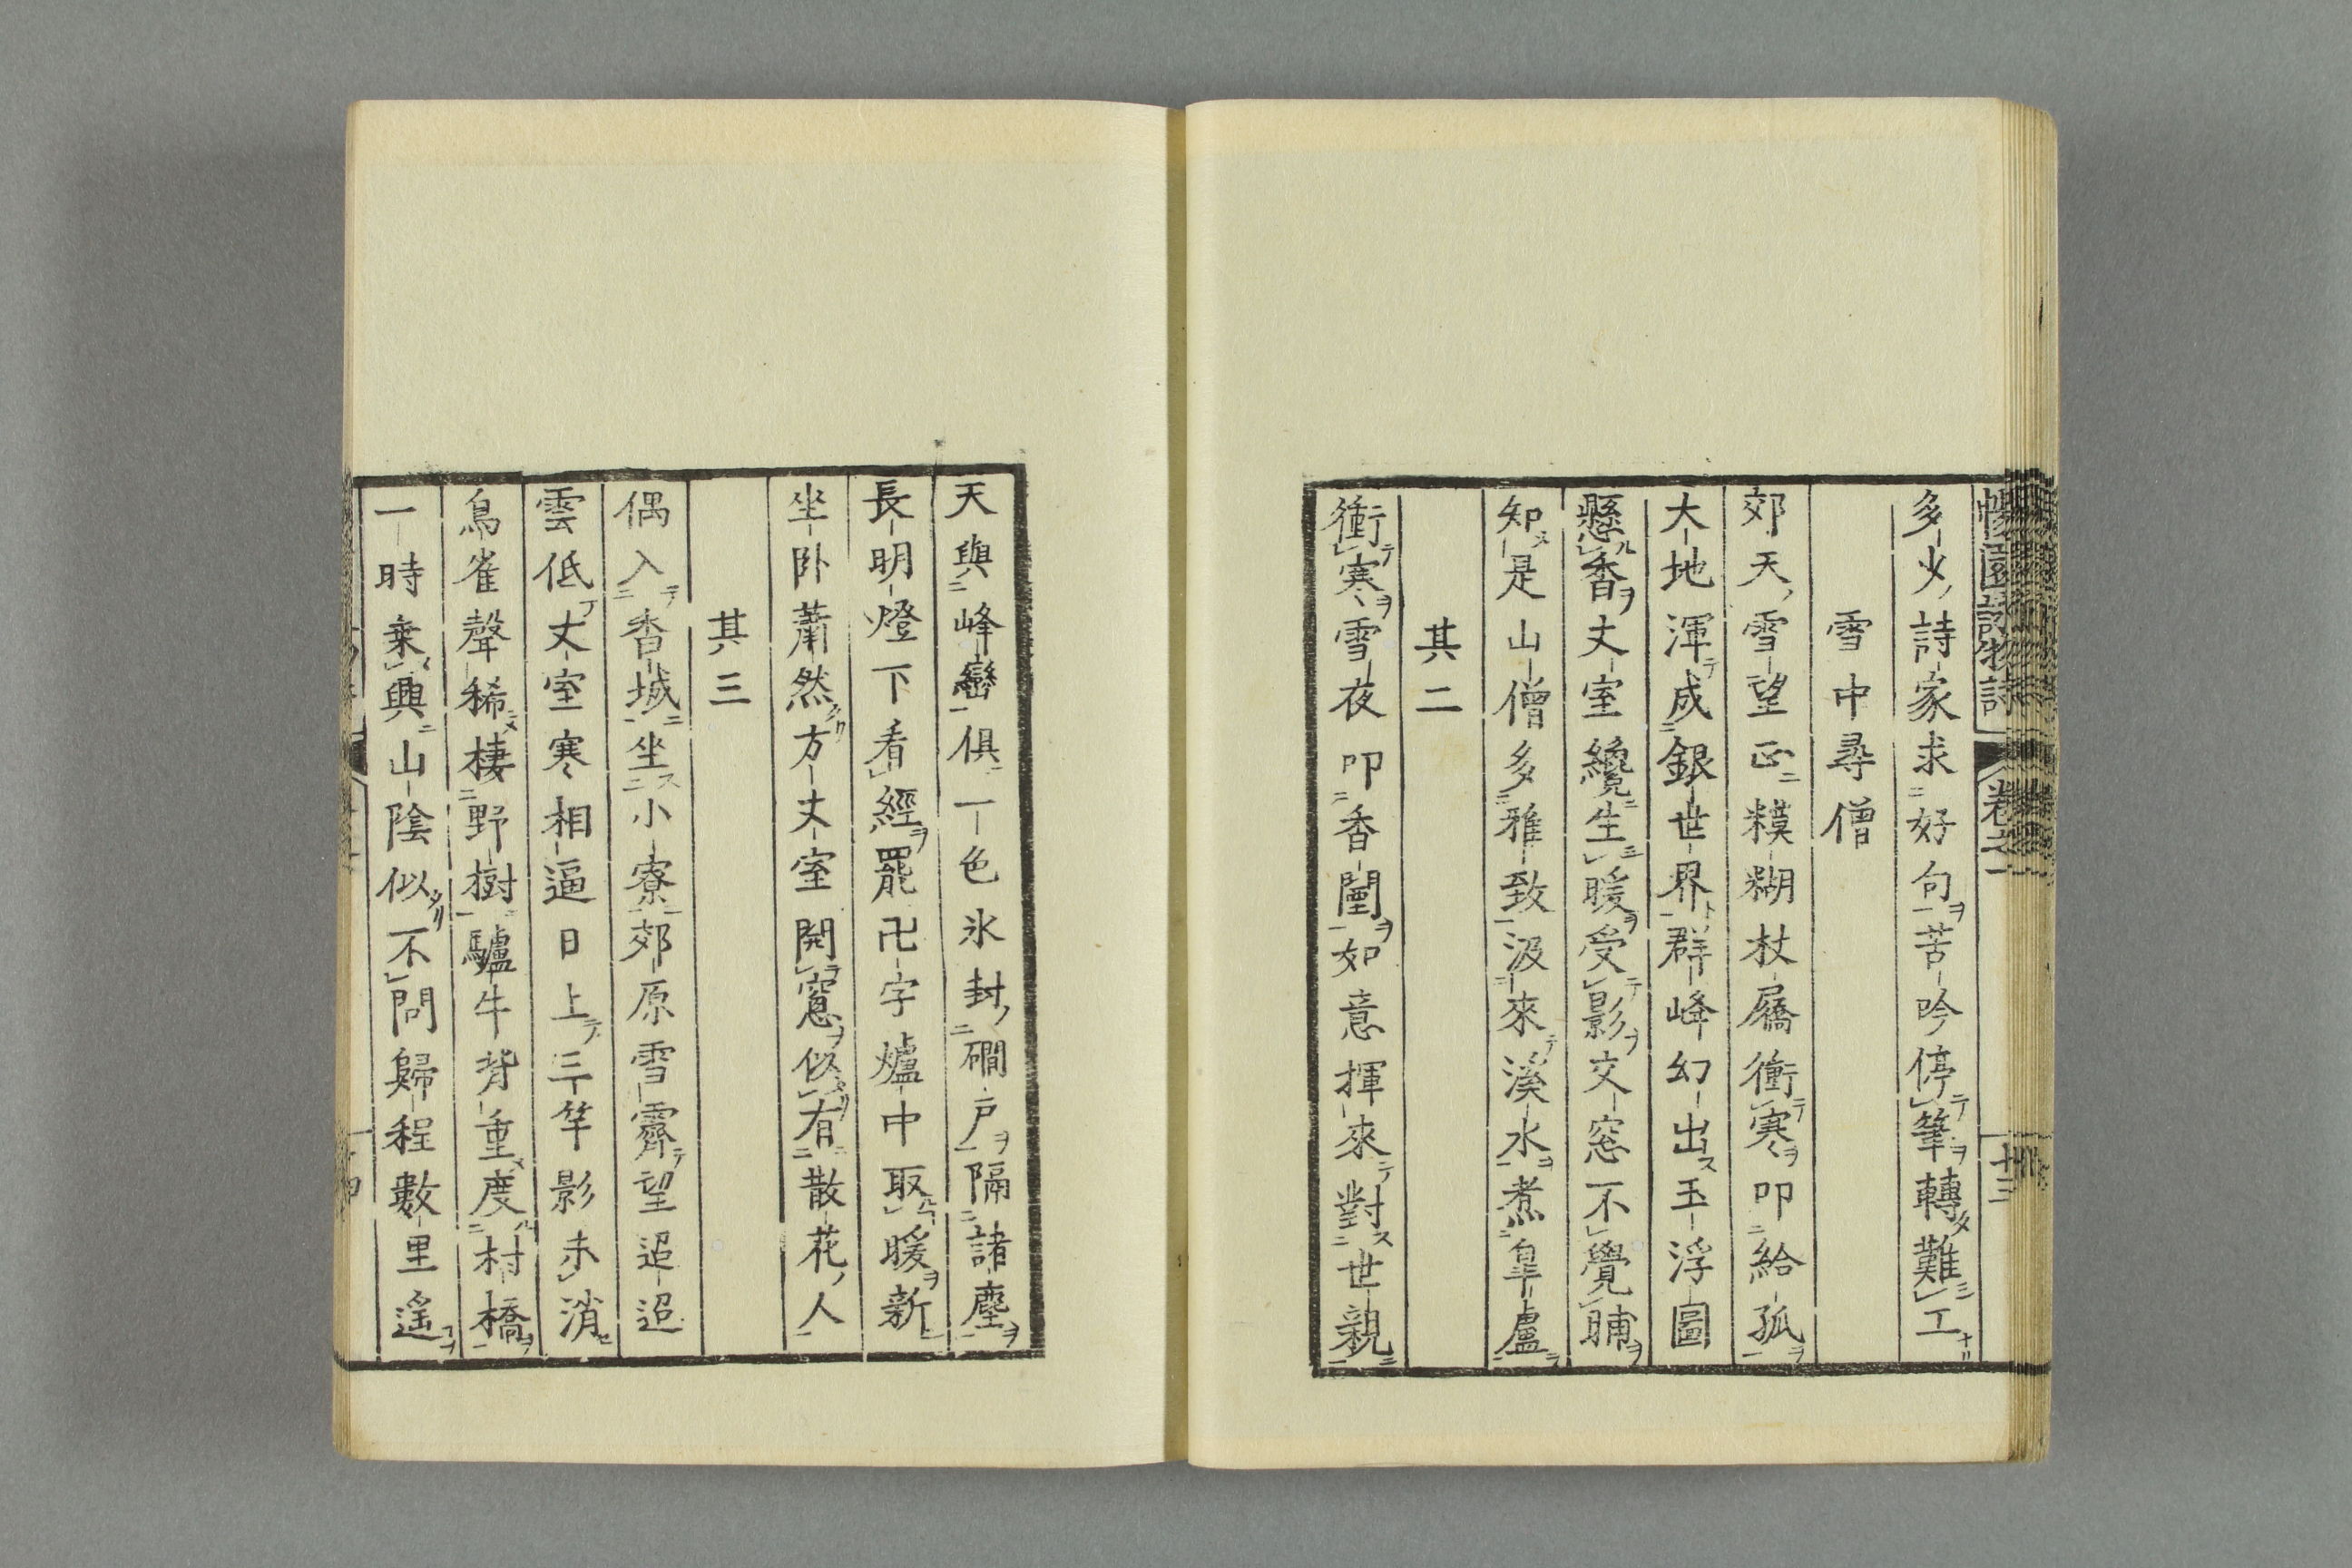 多少詩家求好句苦吟停筆轉難工
雪中尋僧
郊天雪望正糢糊杖屩衝寒叩給孤
大地渾成銀世界群峰幻出玉浮圖
懸香丈室纔生暖受影文窓不覺晡
知是山僧多雅致汲來溪水煮皐盧
其二
衝寒雪夜叩香闉如意揮來對世親
天與峰巒俱一色氷封磵戸隔諸塵
長明燈下看經罷卍字爐中取暖新
坐臥蕭然方丈室開窻似有散花人
其三
偶入香城坐小寮郊原雪霽望迢迢
雲低丈室寒相逼日上三竿影未消
鳥雀聲稀棲野樹驢牛背重度村橋
一時乗興山陰似不問歸程數里遙
卷之一
十三